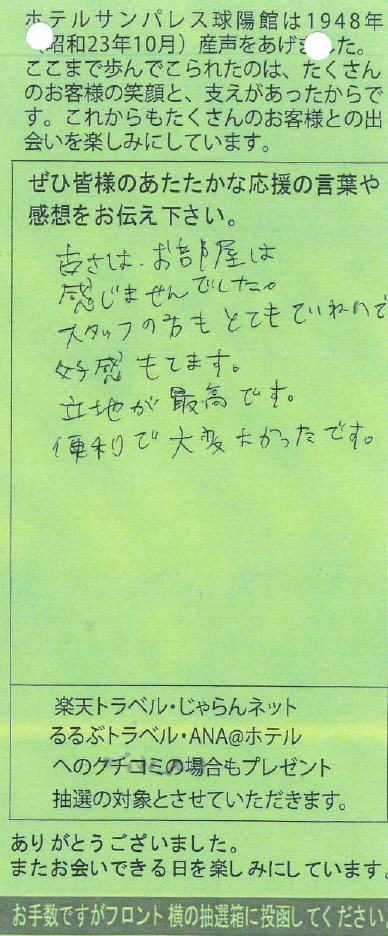 ホテルサンパレス球陽館は1948年
（昭和23年10月）産声をあげました。
ここまで歩んでこられたのは、たくさん
のお客様の笑顔と、支えがあったからで
す。これからもたくさんのお客様との出
会いを楽しみにしています。
ぜひ皆様のあたたかな応援の言葉や
感想をお伝え下さい。
古さは、お部屋は
感じませんでした。
スタッフの方もとてもていねいで
好感もてます。
立地が最高です。
便利で大変よかったです。
楽天トラベル・じゃらんネット
るるぶトラベル・ANA@ホテル
へのクチコミの場合もプレゼント
抽選の対象とさせていただきます。
ありがとうございました。
またお会いできる日を楽しみにしています。
お手数ですがフロント横の抽選箱に投函してください。